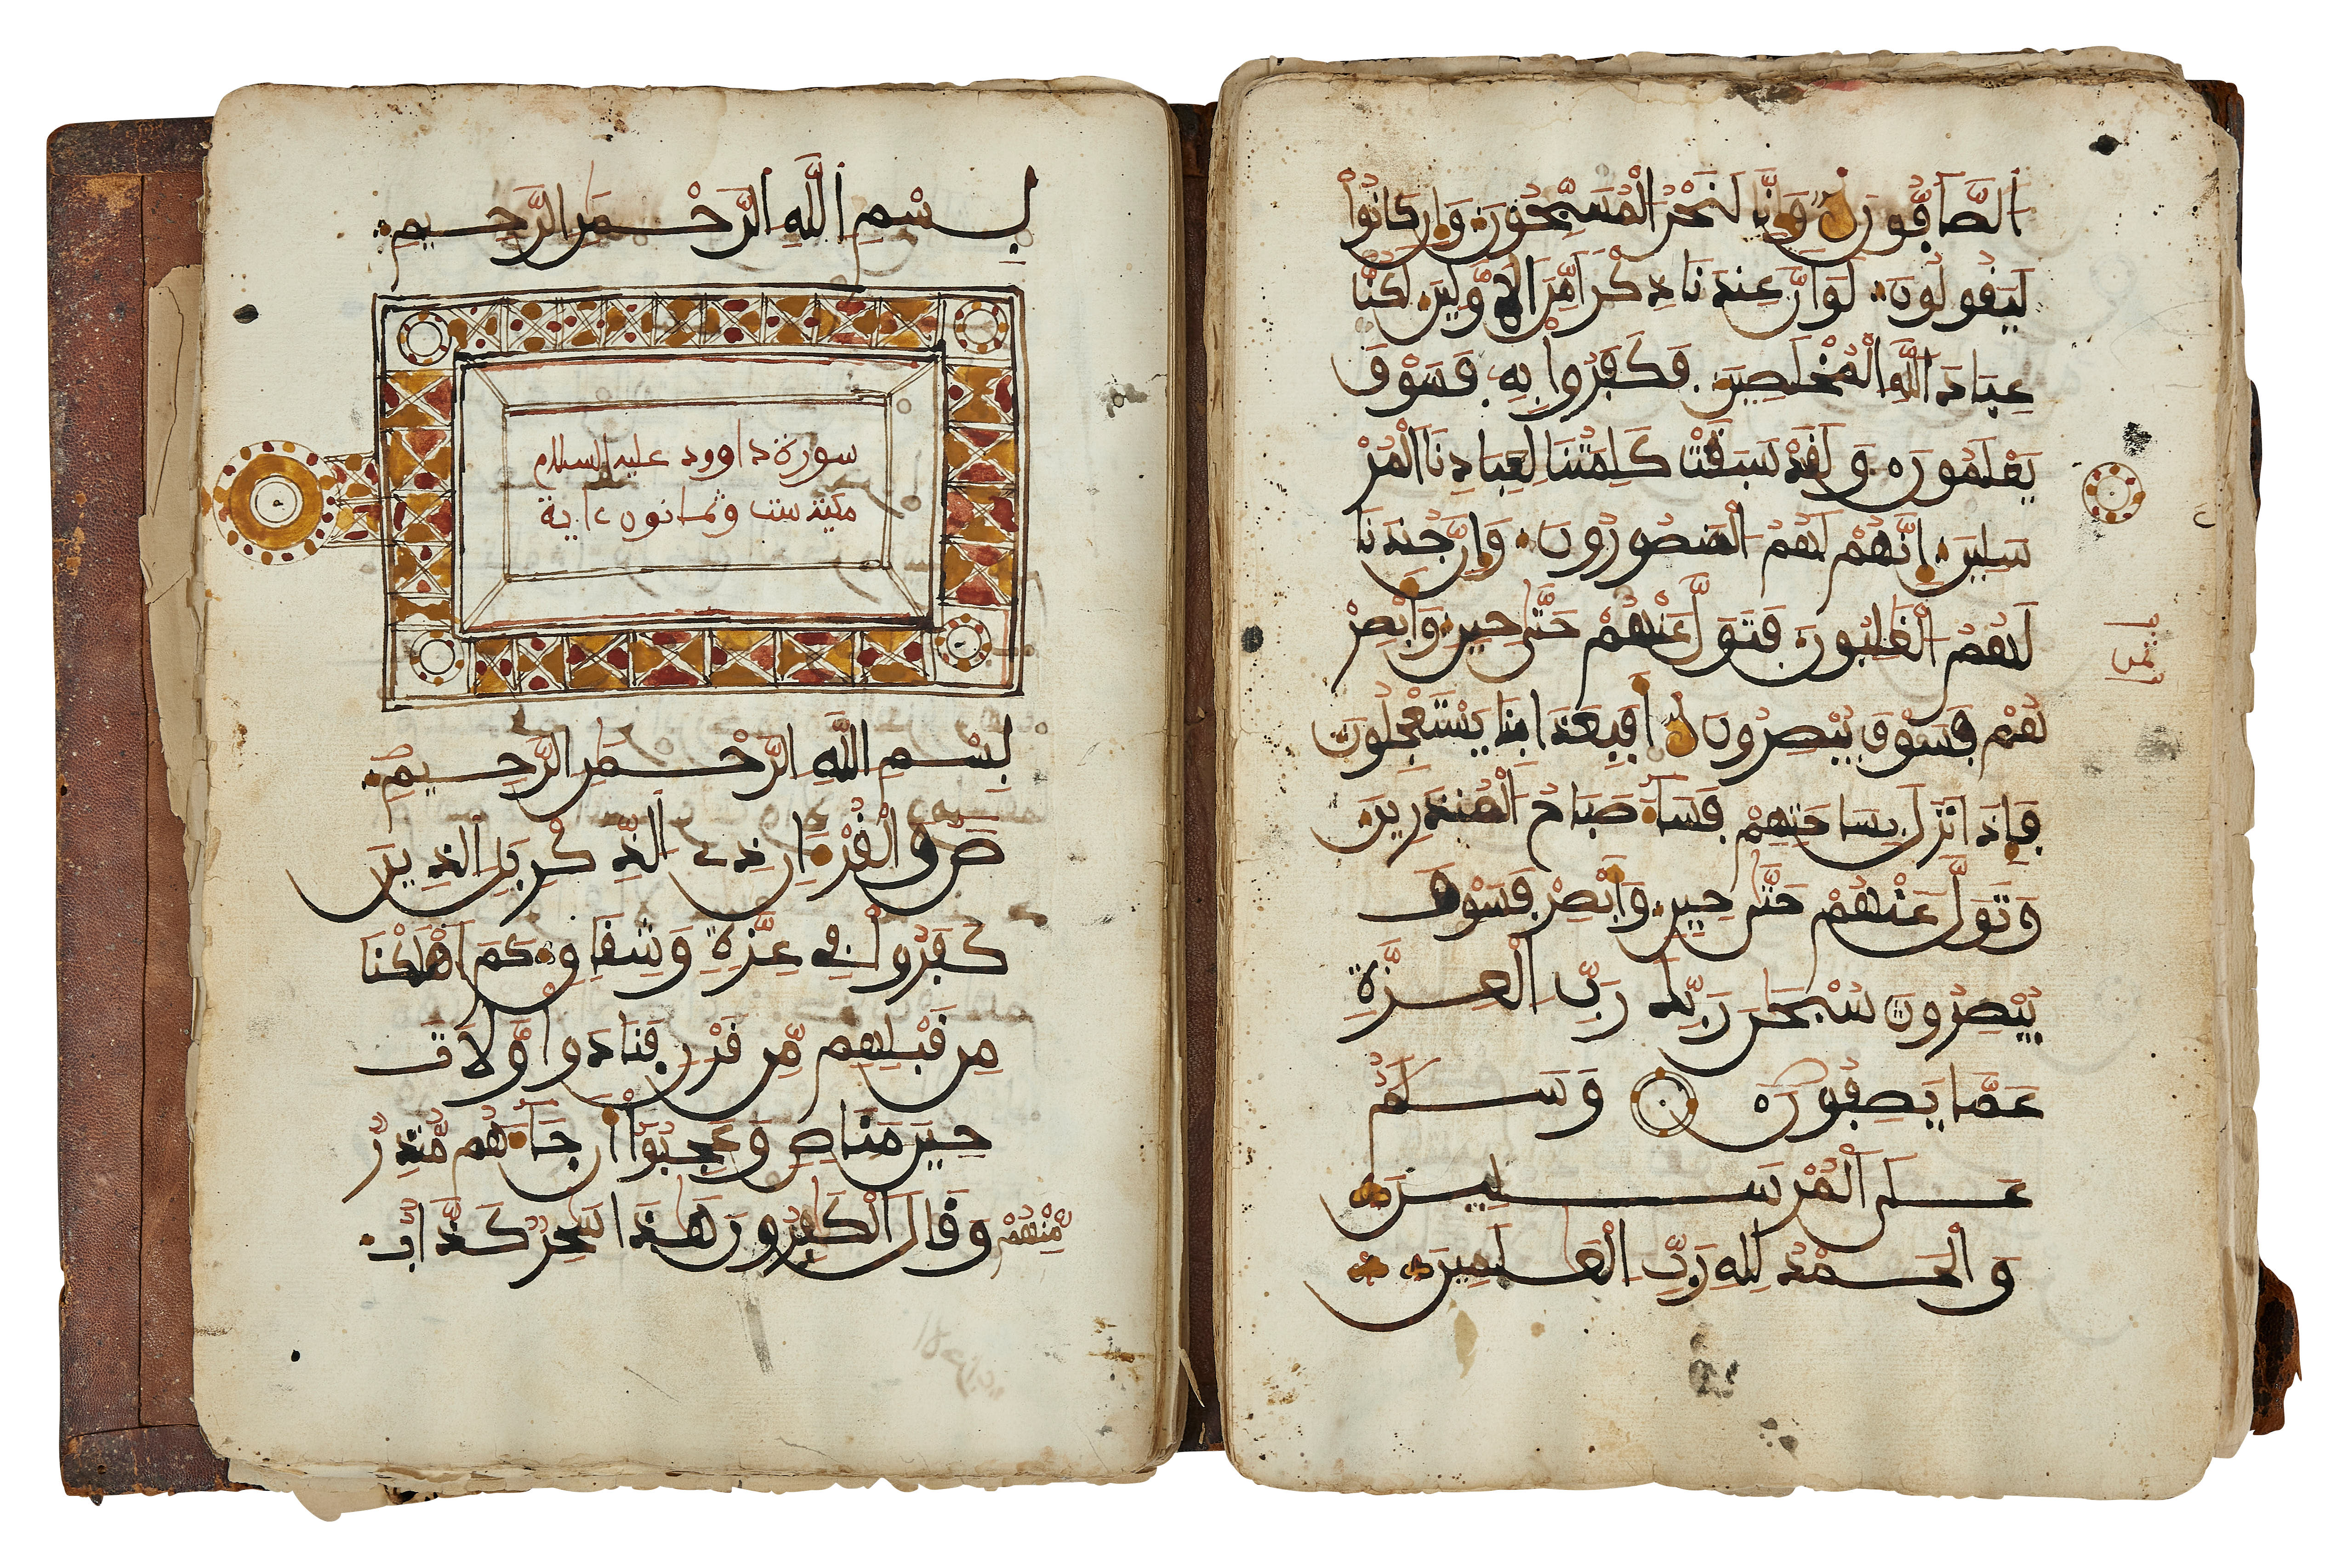 اَلصَّآفُّونَ وَإِنَّا لَنَحْنُ الْمُسَبِّحُونَ وَإِن كَانُواْ
لَيَقُولُونَ لَوَ اَنَّ عِندَنَا ذِكْراً مِّنَ اَلَاوَّلِينَ لَكُنَّا
عِبَادَ اَللَّهِ اِلْمُخْلَصِينَ فَكَفَرُواْ بِهِ فَسَوْفَ
يَعْلَمُونَ وَلَقَدْ سَبَقَتْ كَلِمَتُنَا لِعِبَادِنَا اَلْمُرْ
سَلِينَ إِنَّهُمْ لَهُمُ اَلْمَنصُورُونَ وَإِنَّ جُندَنَا
لَهُمُ اَلْغَٰلِبُونَ فَتَوَلَّ عَنْهُمْ حَتَّىٰ حِينٍ وَأَبْصِرْ
هُمْ فَسَوْفَ يُبْصِرُونَ أَفَبِعَذَابِنَا يَسْتَعْجِلُونَ
فَإِذَا نَزَلَ بِسَاحَتِهِمْ فَسَآءَ صَبَاحُ اَلْمُنذَرِينَ
وَتَوَلَّ عَنْهُمْ حَتَّىٰ حِينٍ وَأَبْصِرْ فَسَوْفَ
يُبْصِرُونَ سُبْحَٰنَ رَبِّكَ رَبِّ اِلْعِزَّةِ
عَمَّا يَصِفُونَ وَسَلَٰمٌ
عَلَى اَلْمُرْسَلِينَ
وَالْحَمْدُ لِلهِ رَبِّ اِلْعَٰلَمِينَ
ثمن
بِسْمِ اِللَّهِ اِلرَّحْمَٰنِ اِلرَّحِيمِ
سورة داوود عليه السلام
مكية ست وثمانون ءاية
بِسْمِ اِللَّهِ اِلرَّحْمَٰنِ اِلرَّحِيمِ
صَ وَالْقُرْءَانِ ذِے اِلذِّكْرِ بَلِ اِلذِينَ
كَفَرُواْ فِى عِزَّةٍ وَشِقَاقٍ كَمَ اَهْلَكْنَا
مِن قَبْلِهِم مِّن قَرْنٍ فَنَادَواْ وَّلَاتَ
حِينَ مَنَاصٍ وَعَجِبُوٓاْ أَن جَآءَهُم مُّنذِرٌ
مِّنْهُمْ وَقَالَ اَلْكَٰفِرُونَ هَٰذَا سَٰحِرٌ كَذَّابٌ